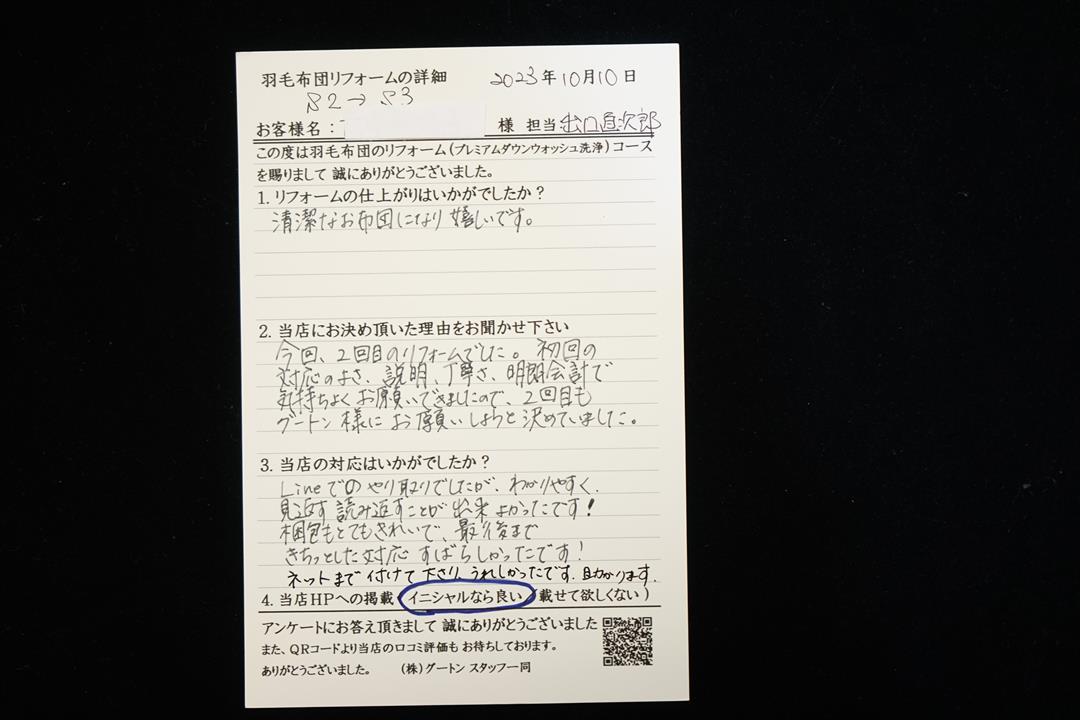 羽毛布団リフォームの詳細 2023年10月10日
S2→S3
お客様名: 様 担当:出口直次郎
この度は羽毛布団のリフォーム(プレミアムダウンウォッシュ洗浄)コース
を賜りまして 誠にありがとうございました。
1. リフォームの仕上がりはいかがでしたか?
清潔なお布団になり嬉しいです。
2. 当店にお決め頂いた理由をお聞かせ下さい
今回、2回目のリフォームでした。初回の
対応のよさ、説明、丁寧さ、明朗会計で
気持ちよくお願いできましたので、2回目も
グートン様にお願いしようと決めていました。
3. 当店の対応はいかがでしたか?
Lineでのやり取りでしたが、わかりやすく、
見返す読み返すことが出来よかったです!
梱包もとてもきれいで、最後まで
きちっとした対応すばらしかったです!
ネットまで付けて下さり、うれしかったです。助かります。
4. 当店HPへの掲載(イニシャルなら良い/載せて欲しくない)
アンケートにお答え頂きまして 誠にありがとうございました
また、QRコードより当店の口コミ評価も お待ちしております。
ありがとうございました。 (株)グートン スタッフ一同